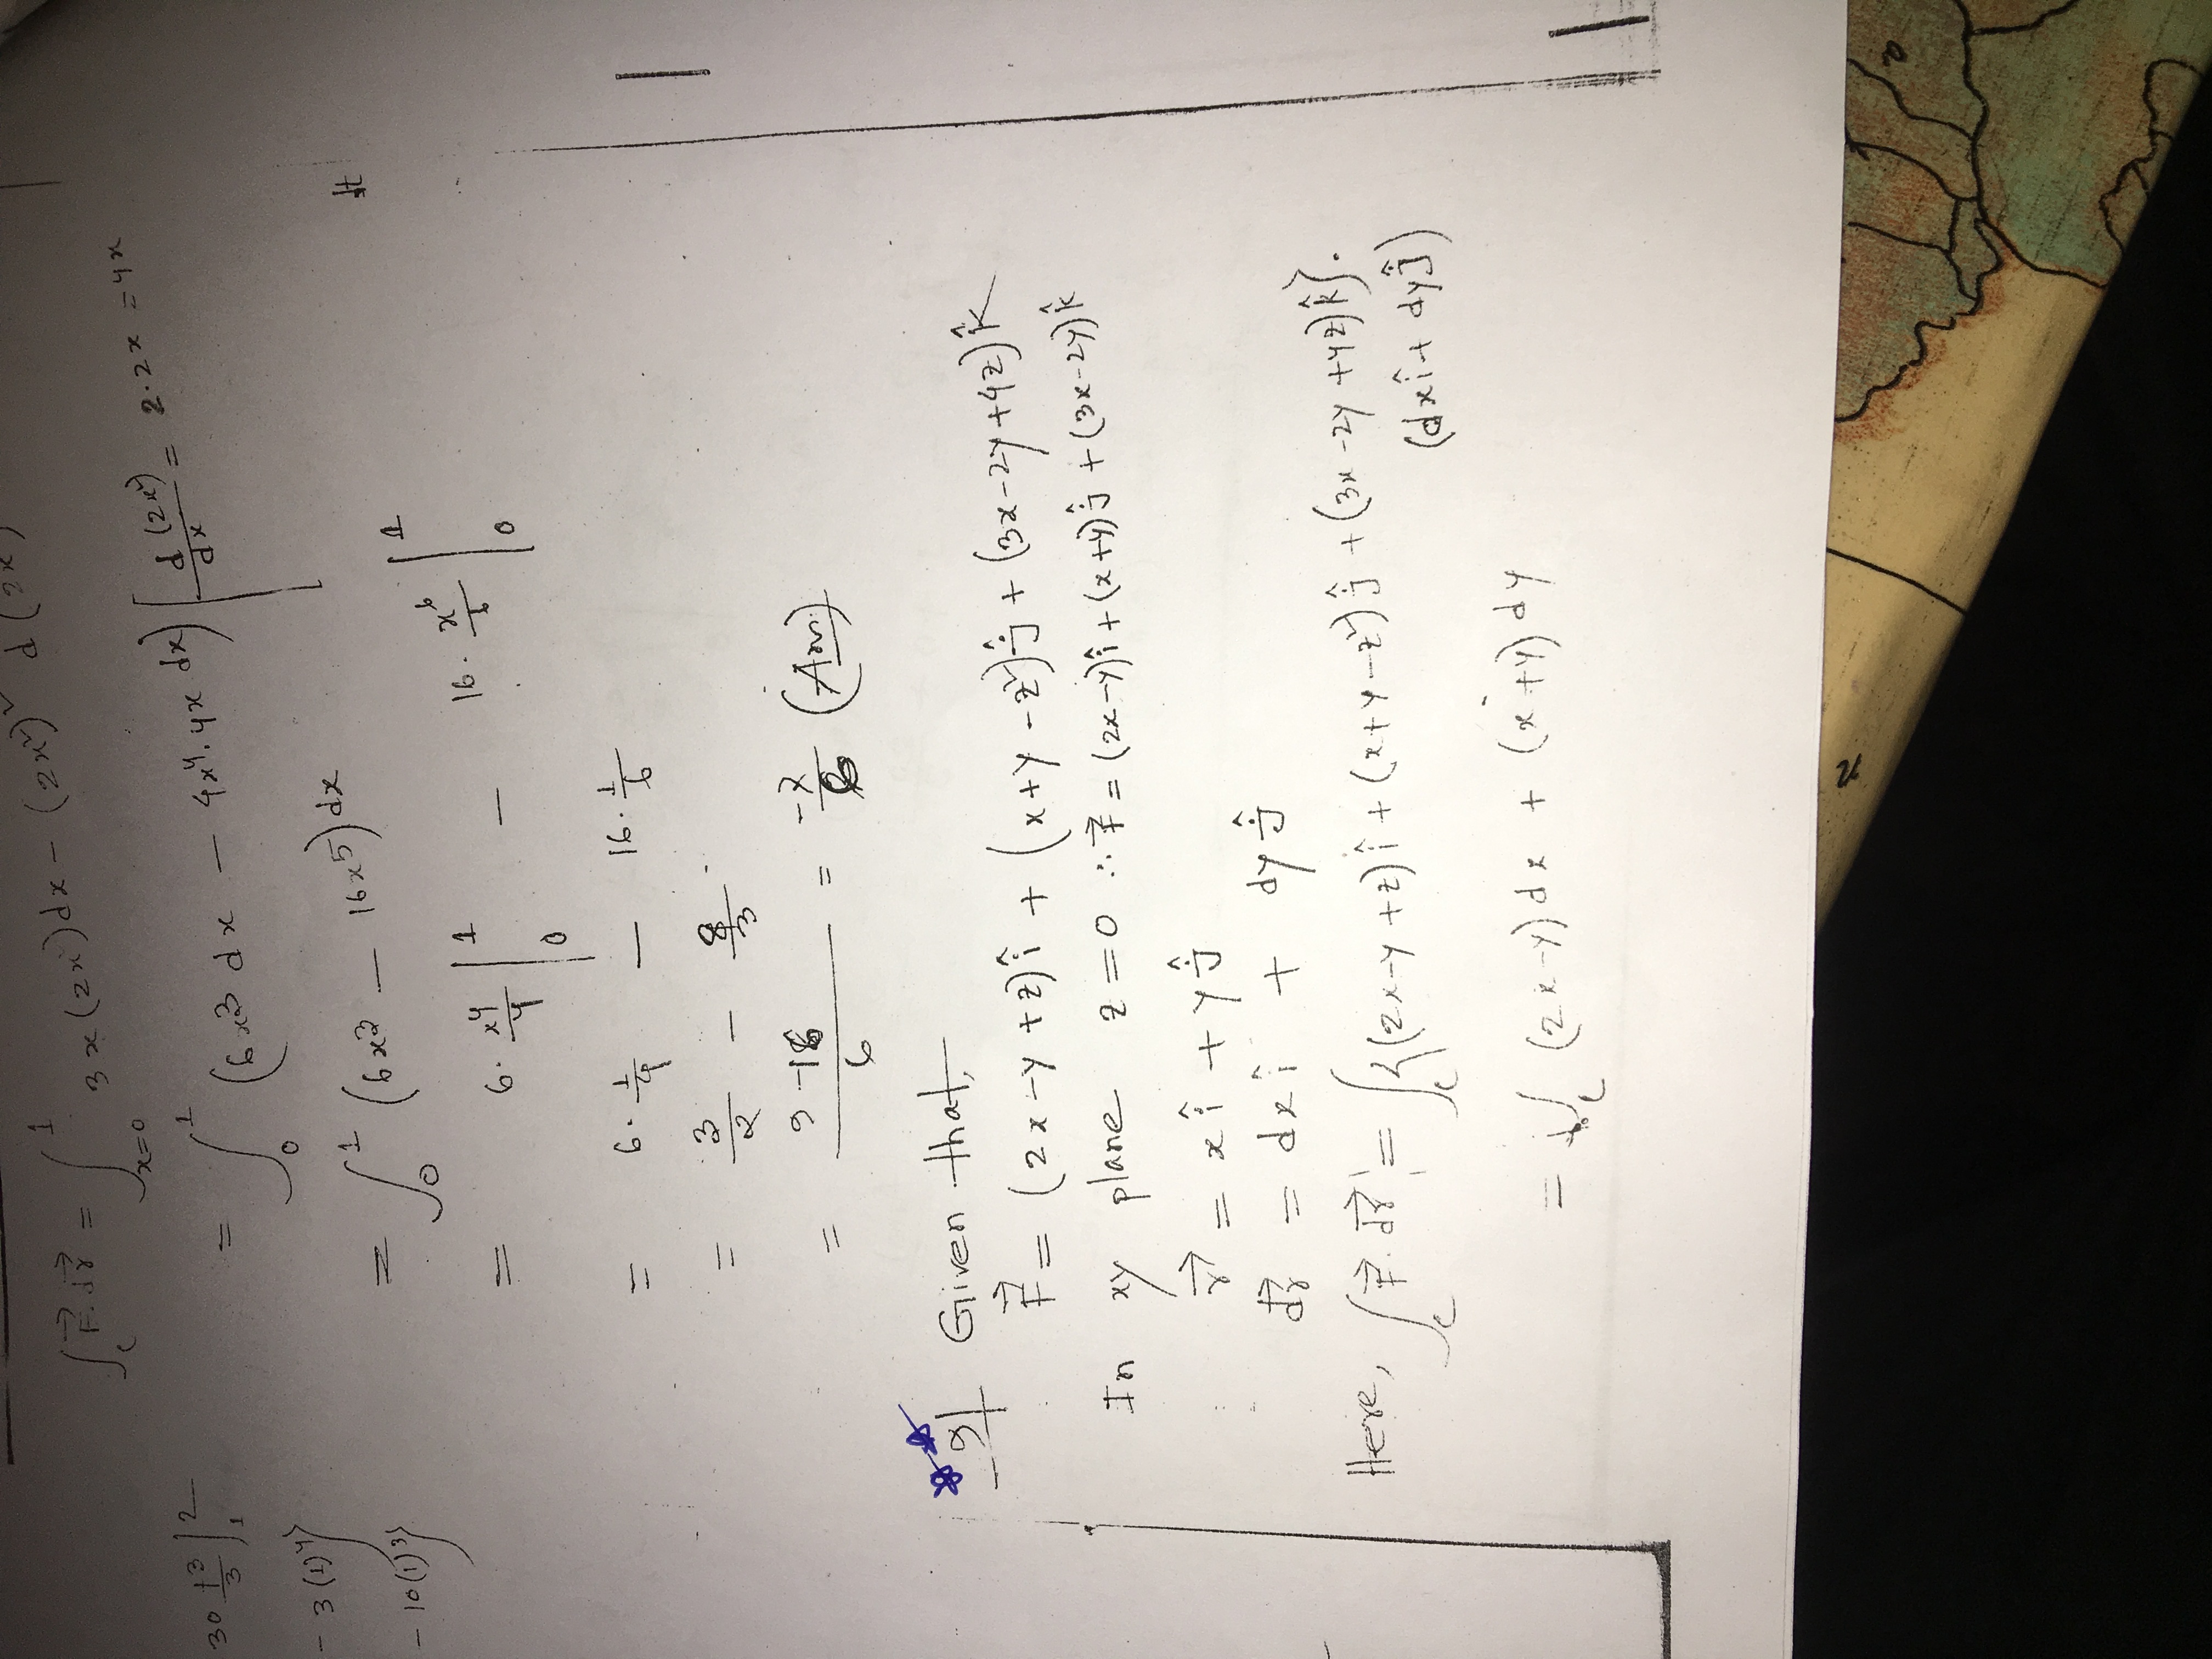 ∫_c F⃗.dr⃗ = ∫_{x=0}^{1} 3x(2x²)dx − (2x²)² d(2x²)
30 t³/3 |₁²
= ∫₀¹ (6x³ dx − 4x⁴.4x dx) [d(2x²)/dx = 2.2x = 4x
− 3(1)⁴}
= ∫₀¹ (6x³ − 16x⁵)dx
dt
− 10(1)³}
= 6. x⁴/4 |₀¹ − 16. x⁶/6 |₀¹
= 6. 1/4 − 16. 1/6
= 3/2 − 8/3
= 9−16/6 = −7/6 (Ans)
9| Given that,
F⃗ = (2x−y+z)î + (x+y−z²)ĵ + (3x−2y+4z)k̂
In xy plane z=0 ∴ F⃗ = (2x−y)î+(x+y)ĵ+(3x−2y)k̂
r⃗ = xî + yĵ
dr⃗ = dxî + dyĵ
Here, ∫_c F⃗.dr⃗ = ∫_c {(2x−y+z)î+(x+y−z²)ĵ+(3x−2y+4z)k̂}.
(dxî+dyĵ)
= ∫_c (2x−y)dx + (x+y)dy